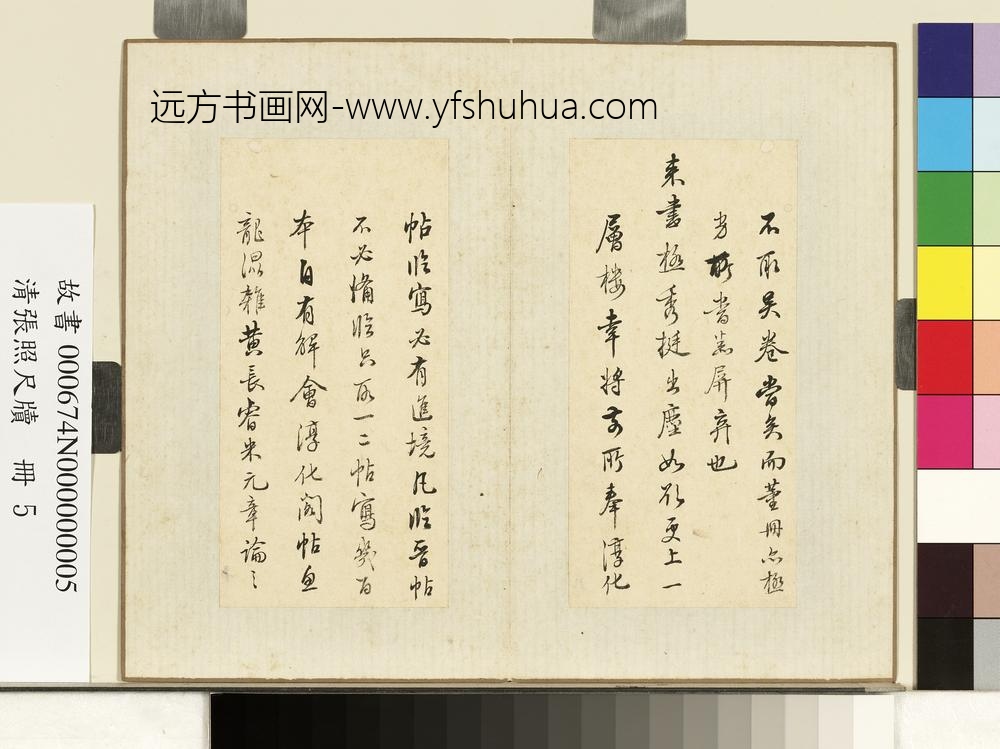 远方书画网-www.yfshuhua.com
不取吴卷當矣而董冊亦極
當為屏弃也
来書極秀挺出塵如欲更上一
層樓幸將前所奉淳化
帖臨寫必有進境凡臨晉帖
不必備臨只取一二帖寫幾百
本自有解會淳化閣帖魚
龍混雜黄長睿米元章論之
故書 000674N000000005
清張照尺牘 冊 5